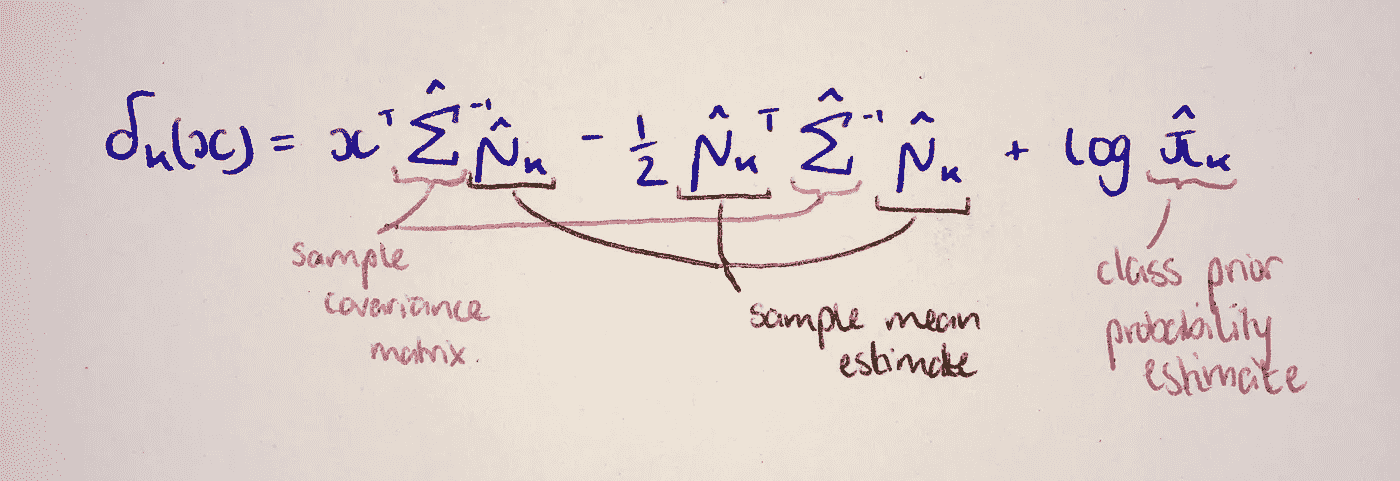 δₖ(x) = xᵀ Σ̂⁻¹ μ̂ₖ - 1/2 μ̂ₖᵀ Σ̂⁻¹ μ̂ₖ + log π̂ₖ
sample
covariance
matrix.
sample mean
estimate
class prior
probability
estimate